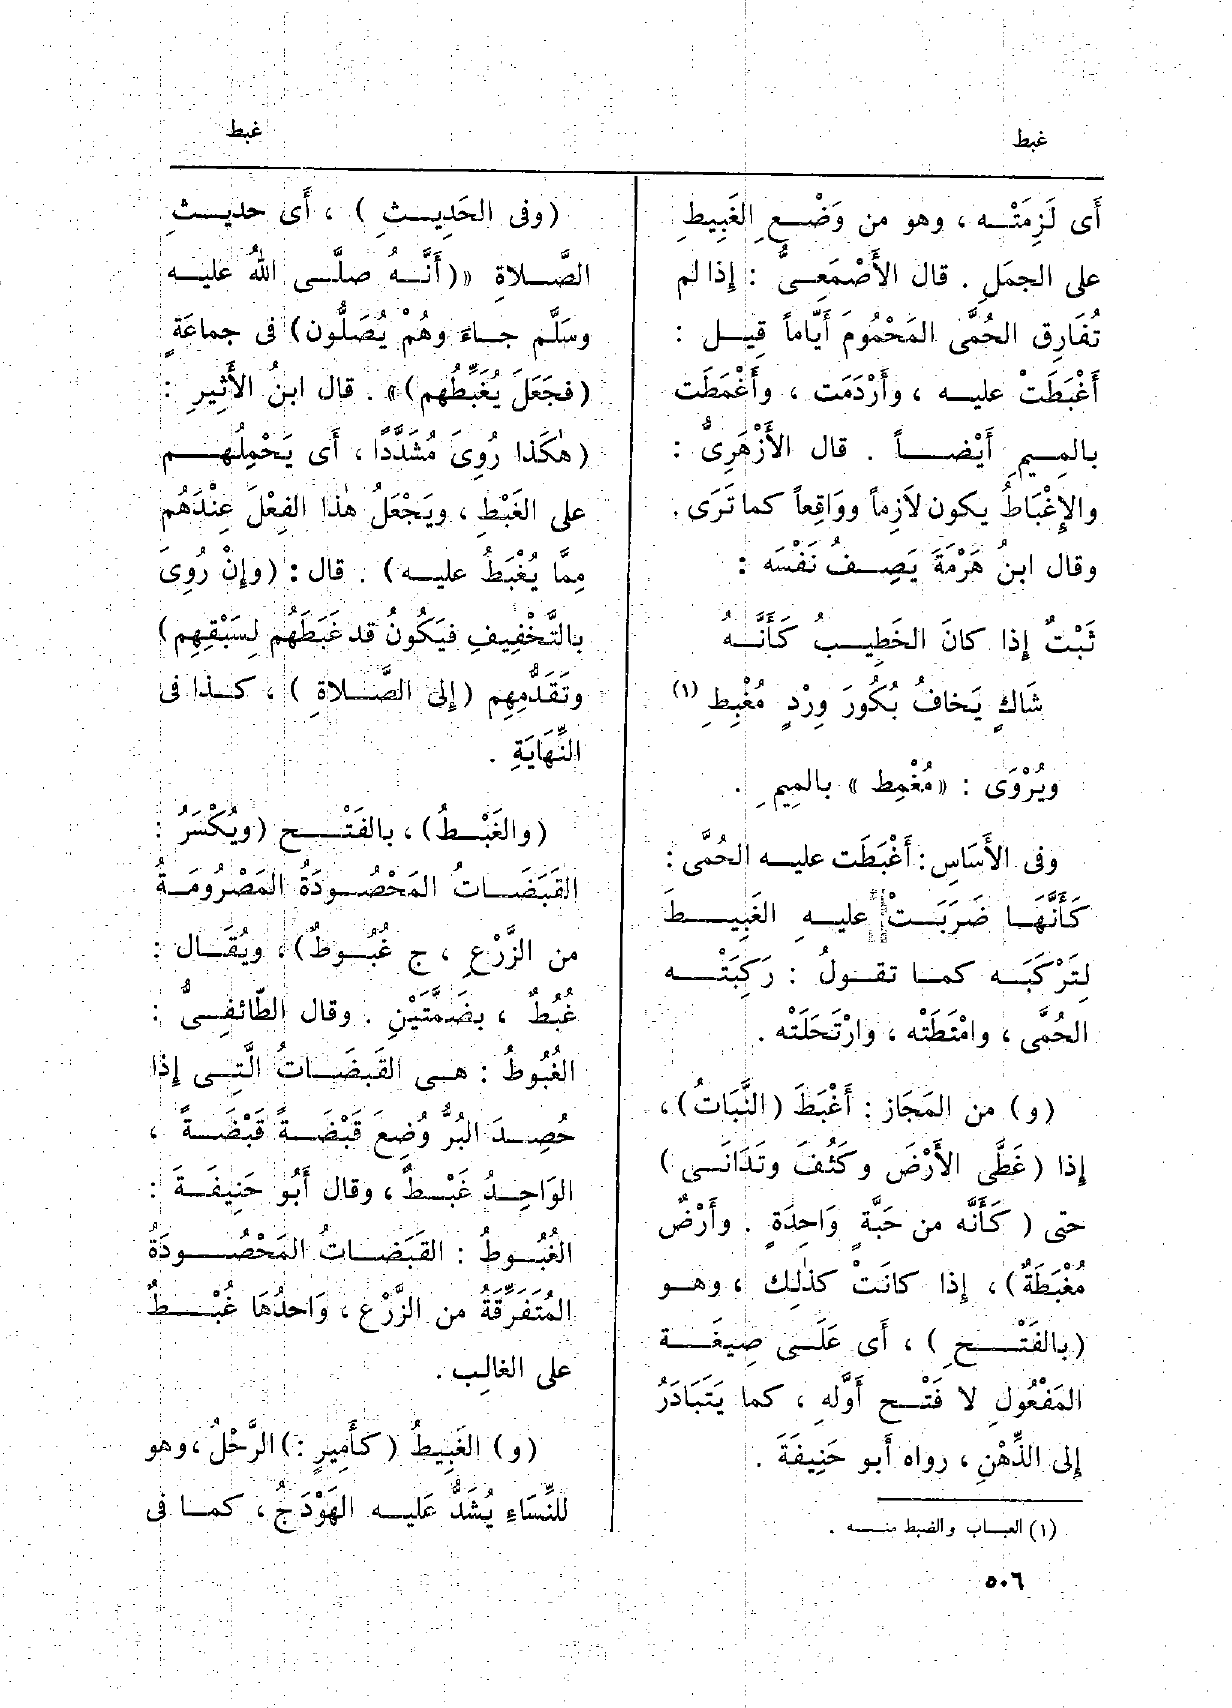 غبط
غبط
أَى لَزِمَتْـه ، وهو من وَضْـعِ الغَبِيطِ
على الجمَلِ . قال الأَصْمَعِـىُّ : إِذا لم
تُفَارِق الحُمَّى المَحْمُومَ أَيَّاماً قِيـل :
أَغْبَطَتْ عليـه ، وأَرْدَمَت ، وأَغْمَطَت
بالمِـيمِ أَيْضـاً . قال الأَزْهَرِىُّ :
والإِغْبَاطُ يكون لاَزِماً ووَاقِعاً كما تَرَى .
وقال ابنُ هَرْمَةَ يَصِـفُ نَفْسَه :
ثَبْتٌ إِذا كانَ الخَطِيبُ كَأَنَّـهُ
شَاكٍ يَخافُ بُكُورَ وِرْدٍ مُغْبِطِ (١)
ويُرْوَى : «مُغْمِط» بالمِيمِ .
وفى الأَسَاسِ : أَغْبَطَت عليـه الحُمَّى :
كَأَنَّهَـا ضَرَبَـتْ عليـهِ الغَبِيـطَ
لِتَرْكَبَـه كمـا تقـولُ : رَكِبَتْـه
الحُمَّى ، وامْتَطَتْه ، وارْتَحَلَتْه .
(و) من المَجَاز : أَغْبَطَ (النَّبَاتُ) ،
إِذا (غَطَّى الأَرْضَ وكَثُفَ وتَدَانَـى)
حتى (كَأَنَّه من حَبَّةٍ وَاحِدَةٍ . وأَرْضٌ
مُغْبَطَةٌ) ، إِذا كانَتْ كذٰلِك ، وهـو
(بالفَتْـحِ) ، أَى عَلَـى صِيغَـة
المَفْعُولِ لا فَتْـحِ أَوَّلهِ ، كما يَتَبَادَرُ
إِلى الذِّهْنِ ، رواه أَبو حَنِيفَةَ .
(١) العبـاب والضبط منـه .
(وفى الحَدِيـثِ) ، أَى حديـثِ
الصَّـلاةِ «(أَنَّـهُ صلَّـى اللهُ عليـه
وسَلَّم جـاءَ وهُمْ يُصَلُّون) فى جماعَةٍ
(فجَعَلَ يُغَبِّطُهم)» . قال ابنُ الأَثِيرِ :
(هٰكَذا رُوِىَ مُشَدَّدًا ، أَى يَحْمِلُهـم
على الغَبْطِ ، ويَجْعَلُ هٰذا الفِعْلَ عِنْدَهُم
مِمَّا يُغْبَطُ عليـه) . قال : (وإِنْ رُوِىَ
بالتَّخْفِيفِ فيَكُونُ قد غَبَطَهُم لِسَبْقِهِم)
وتَقَدُّمِهِم (إِلى الصَّـلاةِ) ، كـذا فى
النِّهَايَةِ .
(والغَبْـطُ) ، بالفَتْـح (ويُكْسَرُ :
القَبَضَـاتُ المَحْصُـودَةُ المَصْرُومَـةُ
من الزَّرْعِ ، ج غُبُـوطٌ) ، ويُقَـال :
غُبُطٌ ، بضَمَّتَيْنِ . وقال الطّائفِـىُّ :
الغُبُوطُ : هـى القَبَضَـاتُ الَّتِـى إِذا
حُصِـدَ البُرُّ وُضِعَ قَبْضَـةً قَبْضَـةً ،
الوَاحِـدُ غَبْـطٌ ، وقال أَبُو حَنِيفَـةَ :
الغُبُـوطُ : القَبَضـاتُ المَحْصُـودَةُ
المُتَفَرِّقَةُ من الزَّرْعِ ، وَاحدُهَا غَبْـطٌ
على الغالِب .
(و) الغَبِيطُ (كأَمِيرٍ :) الرَّحْلُ ، وهو
للنِّسَاءِ يُشَدُّ عَليـه الهَوْدَجُ ، كمـا فى
٥٠٦